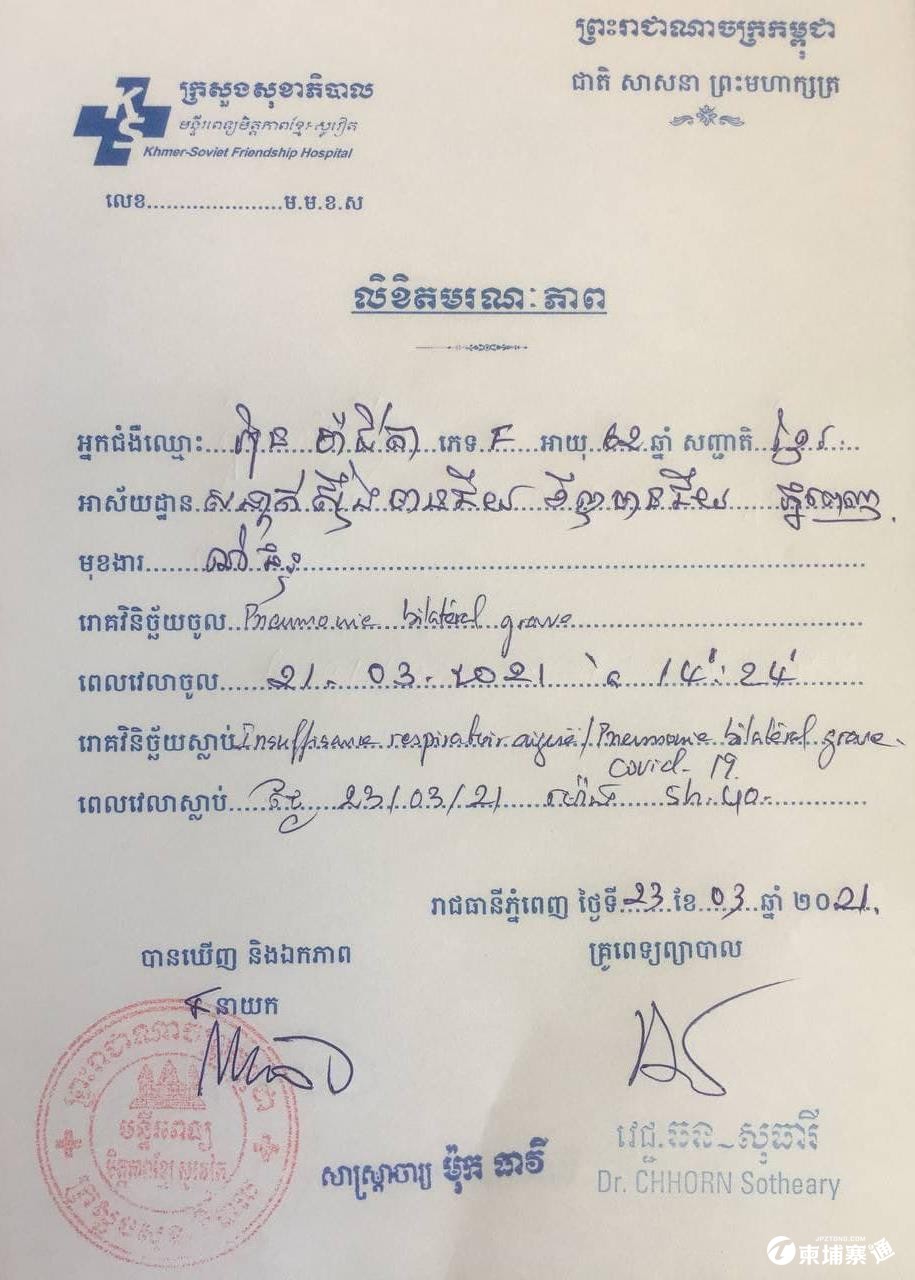 ព្រះរាជាណាចក្រកម្ពុជា
ជាតិ សាសនា ព្រះមហាក្សត្រ
KS
ក្រសួងសុខាភិបាល
មន្ទីរពេទ្យមិត្តភាពខ្មែរ-សូវៀត
Khmer-Soviet Friendship Hospital
លេខ.....................ម.ម.ខ.ស
លិខិតមរណៈភាព
អ្នកជំងឺឈ្មោះ ភេទ F អាយុ ឆ្នាំ សញ្ជាតិ ខ្មែរ
អាស័យដ្ឋាន ស្ទឹងមានជ័យ មានជ័យ ភ្នំពេញ
មុខងារ
រោគវិនិច្ឆ័យចូល Pneumonie bilatéral grave
ពេលវេលាចូល 21. 03. 2021 14:24
រោគវិនិច្ឆ័យស្លាប់ Insuffisance respiratoir aiguë / Pneumonie bilatéral grave
Covid-19.
ពេលវេលាស្លាប់ ថ្ងៃ 23/03/21 ម៉ោង 5h.40
រាជធានីភ្នំពេញ ថ្ងៃទី 23 ខែ 03 ឆ្នាំ ២០21
បានឃើញ និងឯកភាព
គ្រូពេទ្យព្យាបាល
នាយក
ព្រះរាជាណាចក្រកម្ពុជា
មន្ទីរពេទ្យ
មិត្តភាពខ្មែរ សូវៀត
ក្រសួងសុខាភិបាល
សាស្ត្រាចារ្យ ម៉ុក ធាវី
វេជ្ជ.ឆន សុធារី
Dr. CHHORN Sotheary
JPZTONG.COM
柬埔寨通